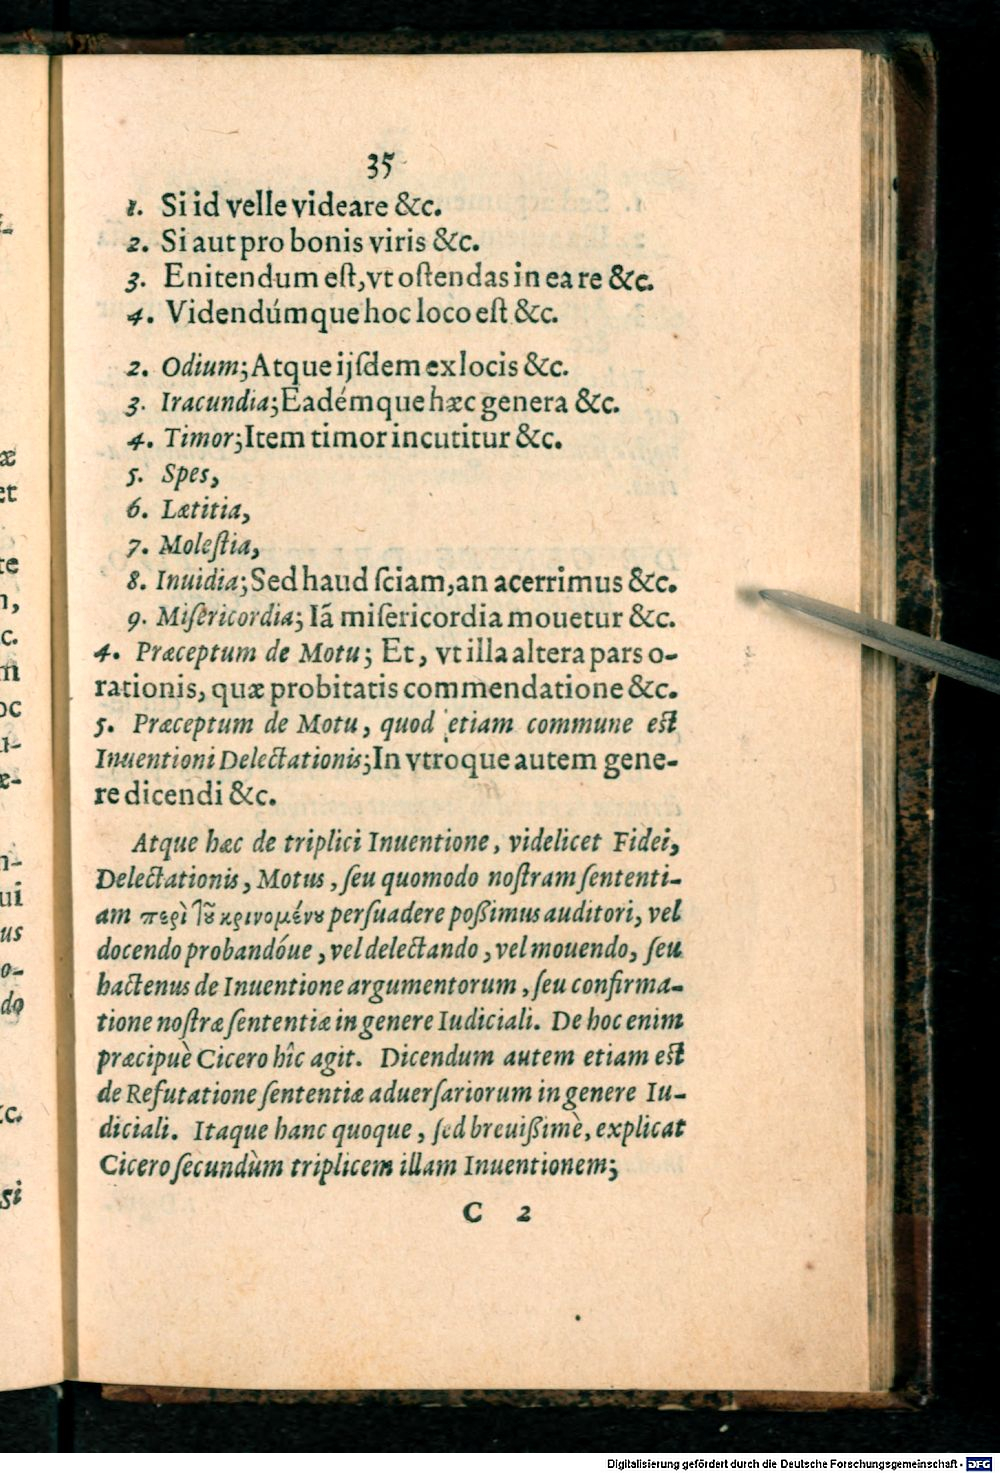 35
1. Si id velle videare &c.
2. Si aut pro bonis viris &c.
3. Enitendum eſt, vt oſtendas in ea re &c.
4. Videndúmque hoc loco eſt &c.
2. Odium; Atque ijſdem ex locis &c.
3. Iracundia; Eadémque hæc genera &c.
4. Timor; Item timor incutitur &c.
5. Spes,
6. Lætitia,
7. Moleſtia,
8. Inuidia; Sed haud ſciam, an acerrimus &c.
9. Miſericordia; Iã miſericordia mouetur &c.
4. Præceptum de Motu; Et, vt illa altera pars o-
rationis, quæ probitatis commendatione &c.
5. Præceptum de Motu, quod etiam commune eſt
Inuentioni Delectationis; In vtroque autem gene-
re dicendi &c.
Atque hæc de triplici Inuentione, videlicet Fidei,
Delectationis, Motus, ſeu quomodo noſtram ſententi-
am περὶ τοῦ κρινομένου perſuadere poßimus auditori, vel
docendo probandóue, vel delectando, vel mouendo, ſeu
hactenus de Inuentione argumentorum, ſeu confirma-
tione noſtræ ſententiæ in genere Iudiciali. De hoc enim
præcipuè Cicero hîc agit. Dicendum autem etiam eſt
de Refutatione ſententiæ aduerſariorum in genere Iu-
diciali. Itaque hanc quoque, ſed breuißimè, explicat
Cicero ſecundùm triplicem illam Inuentionem;
C 2
æ
et
te
n,
c.
m
oc
ui
us
o-
do
&c.
si
Digitalisierung gefördert durch die Deutsche Forschungsgemeinschaft - DFG